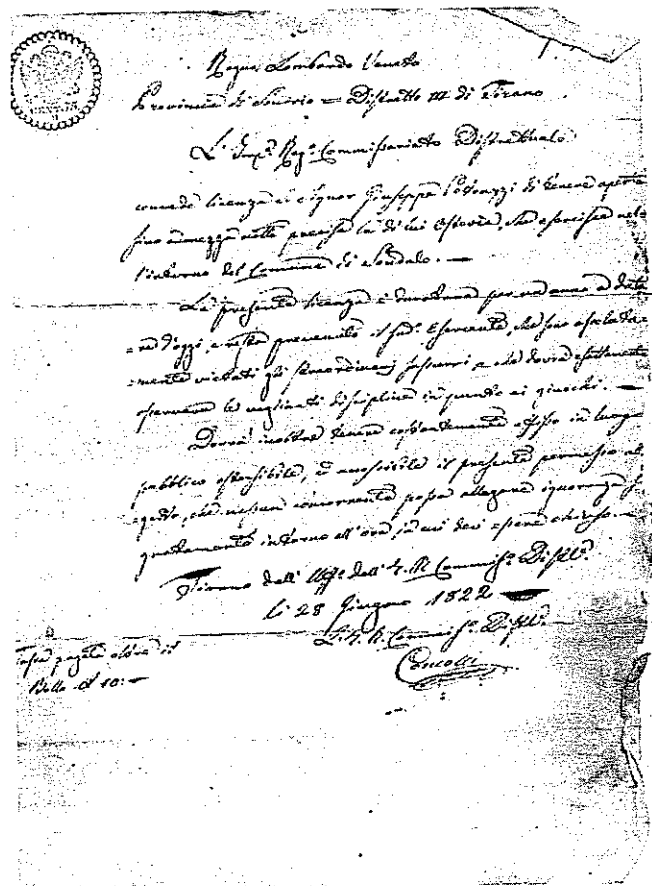 Regno Lombardo Veneto
Provincia di Sondrio = Distretto III di Tirano
L'Imp. Reg. Commissariato Distrettuale
concede licenza al Signor Giuseppe di tenere aperta
fino a mezza notte precisa la di lui Osteria, che esercisce nel
l'interno del Comune di Sondalo. —
La presente licenza è duratura per un anno a data
= re d'oggi, e resta prevenuto il sud.º Esercente, che sono assoluta =
= mente vietati gli straordinarj sussurri e che dovrà esattamente
osservare le veglianti discipline in quanto ai giuochi. —
Dovrà inoltre tenere costantemente affisso in luogo
pubblico ostensibile, ed accessibile il presente permesso al
quale, che nessun concorrente possa allegare ignoranza
intorno all'ora in cui deve essere chiuso. —
Tirano dall'Uff.º dell'I. R. Commiss.º Distr.º
li 28 Giugno 1822
L'I. R. Commiss.º Distr.º
Tassa pagata oltre il
Bollo 10: —